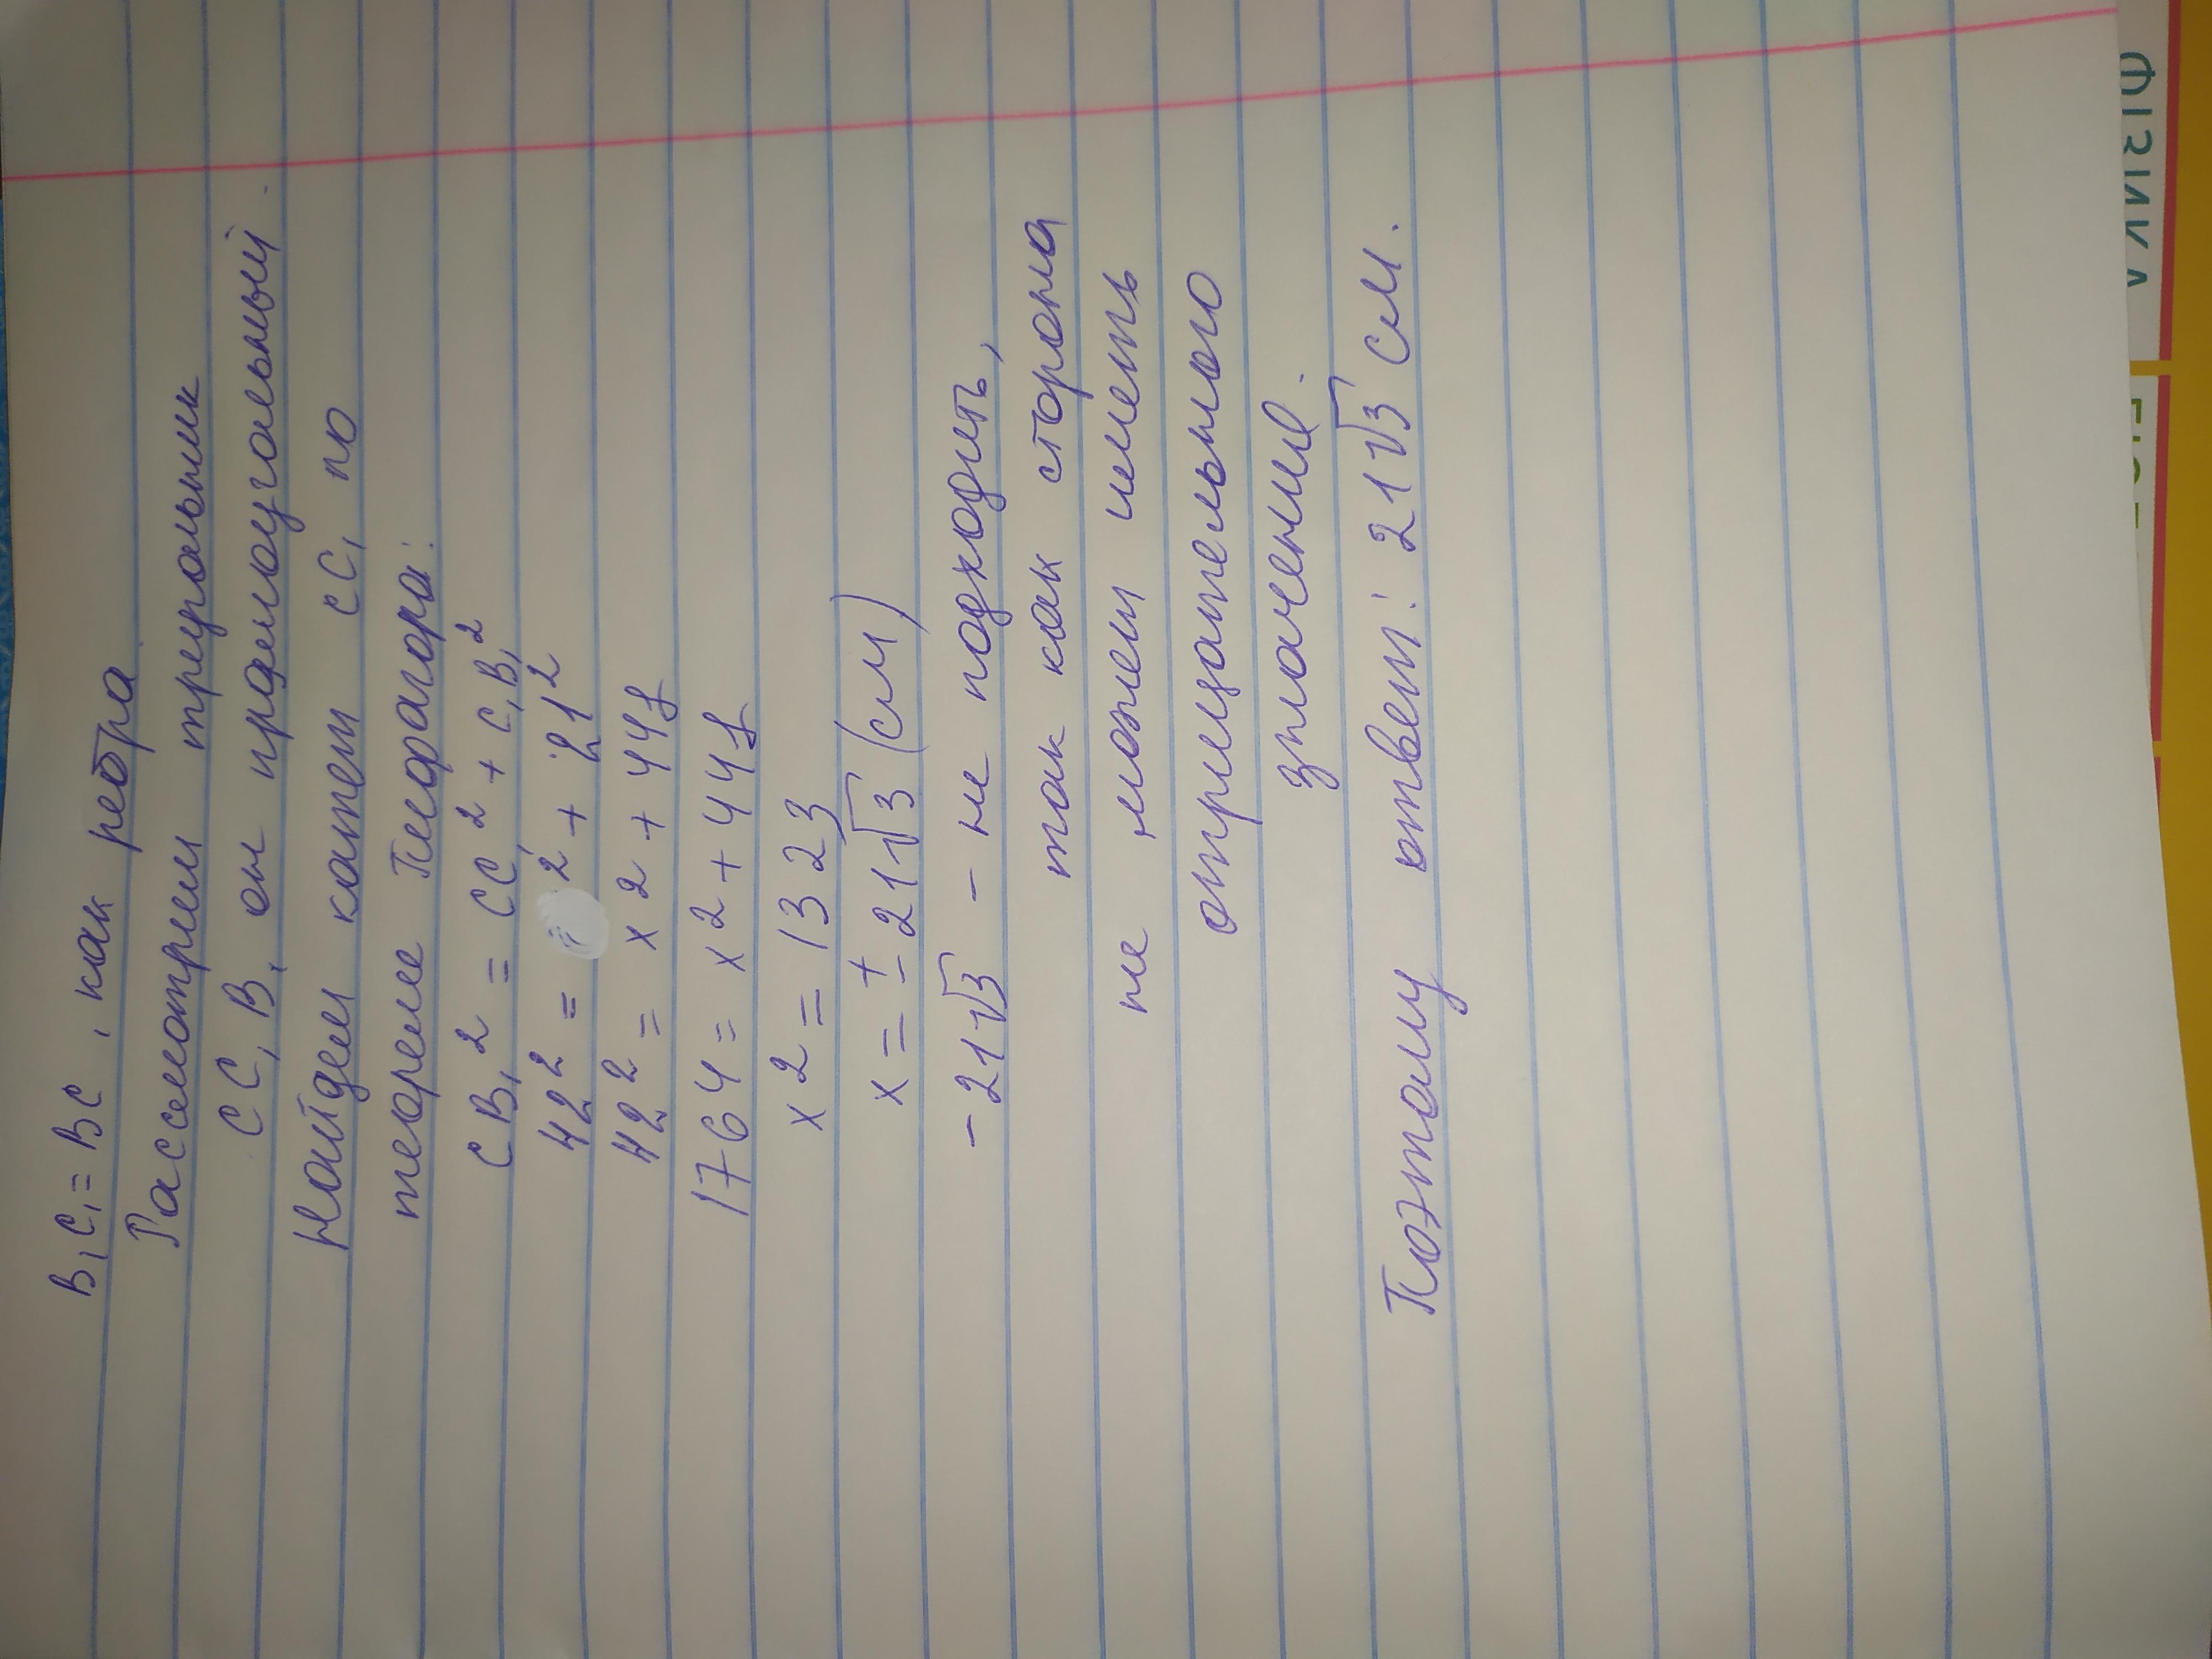 B₁C₁ = BC, как ребра
Рассмотрим треугольник
CC₁B₁ он прямоугольный.
Найдем катет CC₁ по
теореме Пифагора:
CB₁² = CC₁² + C₁B₁²
42² = ² + 21²
42² = x² + 441
1764 = x² + 441
x² = 1323
x = ± 21√3 (см)
-21√3 - не подходить,
так как сторона
не может иметь
отрицательного
значение.
Поэтому ответ: 21√3 см.
ФІЗИКА